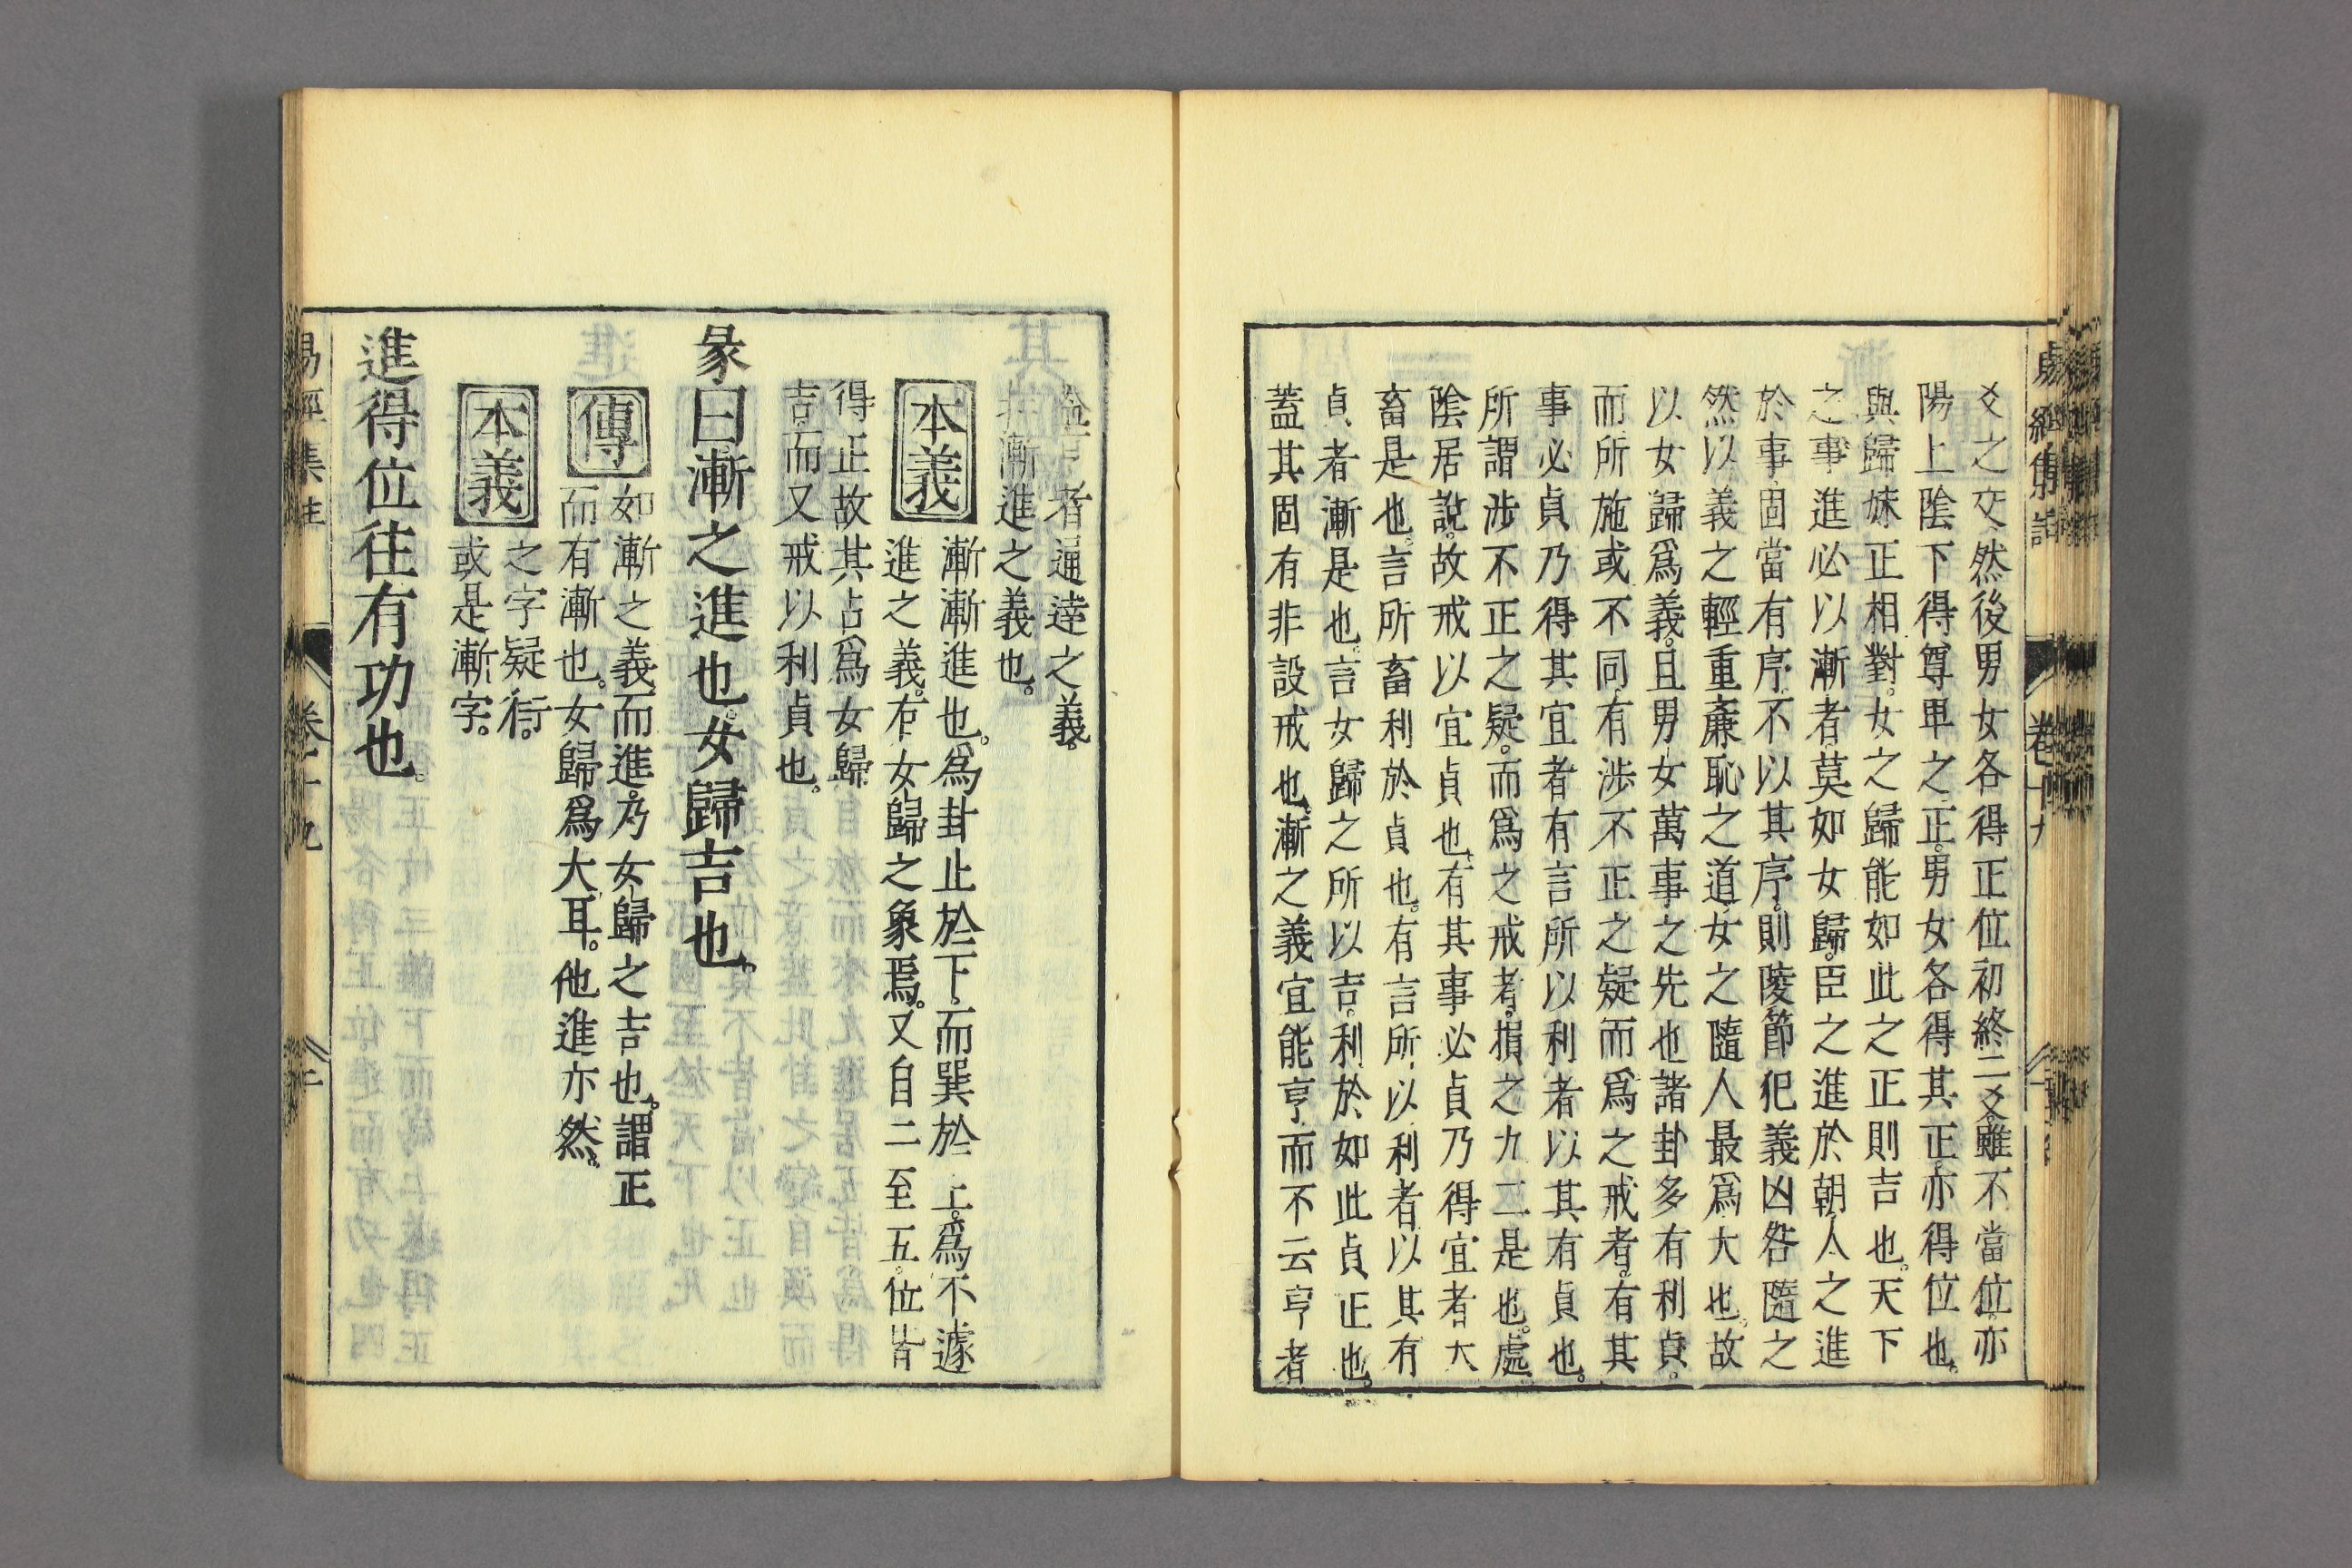 爻之交然後男女各得正位初終二爻雖不當位亦
陽上陰下得尊卑之正。男女各得其正亦得位也。
與歸妹正相對。女之歸能如此之正則吉也。天下
之事進必以漸者莫如女歸。臣之進於朝人之進
於事固當有序不以其序。則陵節犯義凶咎隨之
然以義之輕重廉恥之道女之隨人最爲大也。故
以女歸爲義。且男女萬事之先也諸卦多有利貞。
而所施或不同有涉不正之疑而爲之戒者。有其
事必貞乃得其宜者有言所以利者以其有貞也。
所謂涉不正之疑。而爲之戒者。損之九二是也。處
陰居說。故戒以宜貞也。有其事必貞乃得宜者大
畜是也。言所畜利於貞也。有言所以利者以其有
貞者漸是也。言女歸之所以吉。利於如此貞正也。
蓋其固有非設戒也。漸之義宜能亨而不云亨者
蓋亨者通達之義。
非漸進之義也。
本義 漸漸進也。爲卦止於下。而巽於上。爲不遽
進之義。有女歸之象焉。又自二至五。位皆
得正故其占爲女歸
吉。而又戒以利貞也。
彖曰。漸之進也。女歸吉也。
傳 如漸之義而進。乃女歸之吉也。謂正
而有漸也。女歸爲大耳。他進亦然。
本義 之字疑衍。
或是漸字。
進得位往有功也。
易經集註 卷十九 二